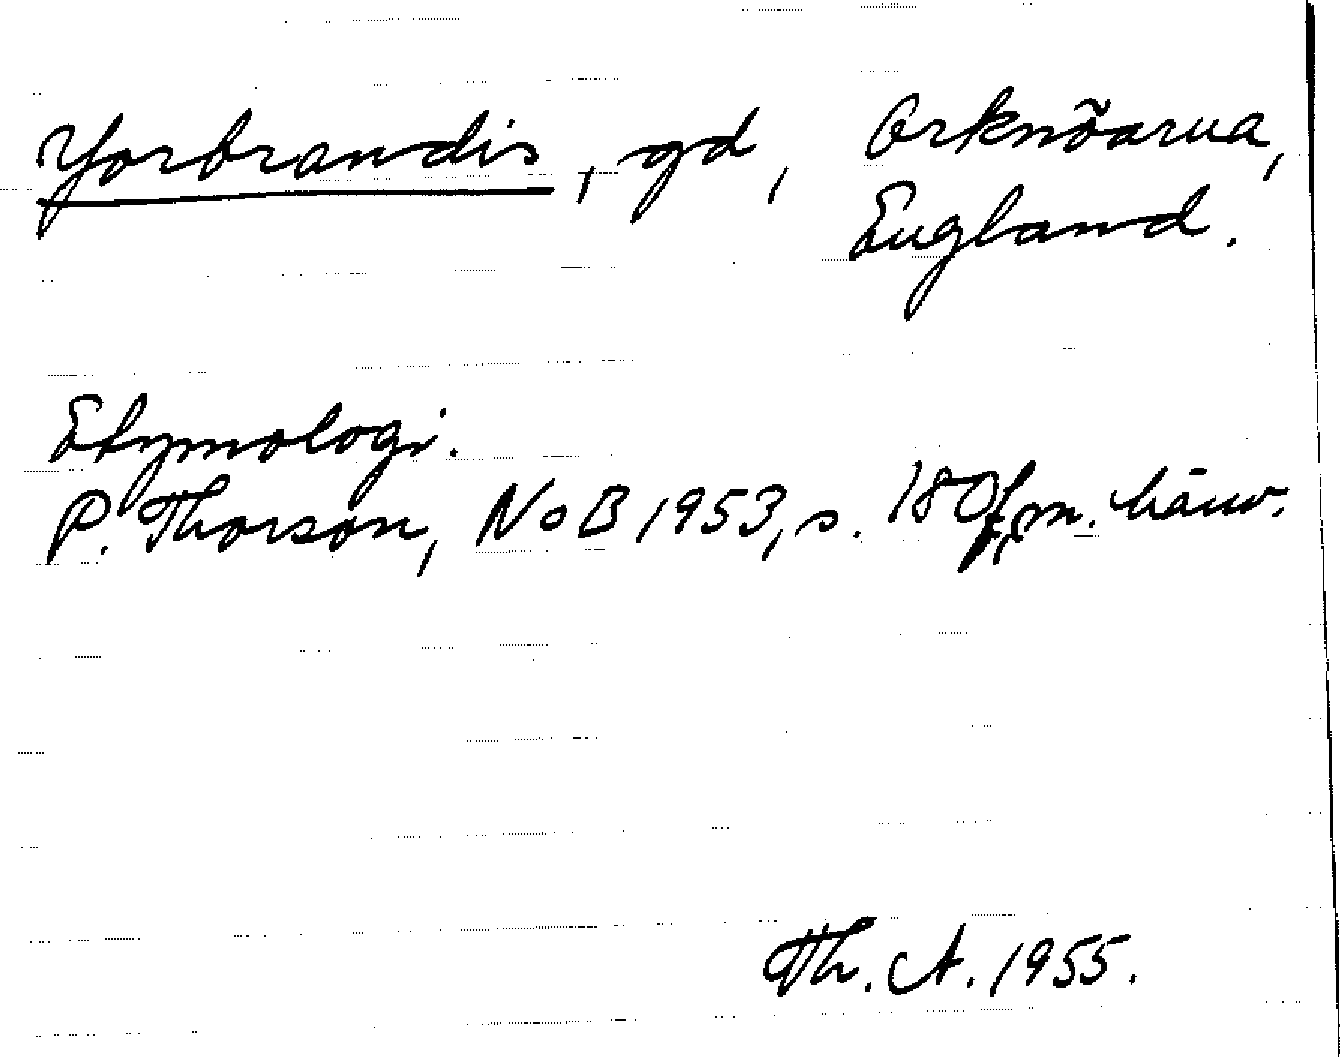 Yorbrandis, gd, Orknöarna,
England.
Etymologi.
P. Thorson, NoB 1953, s. 180 f, m. hänv.
Th. A. 1955.